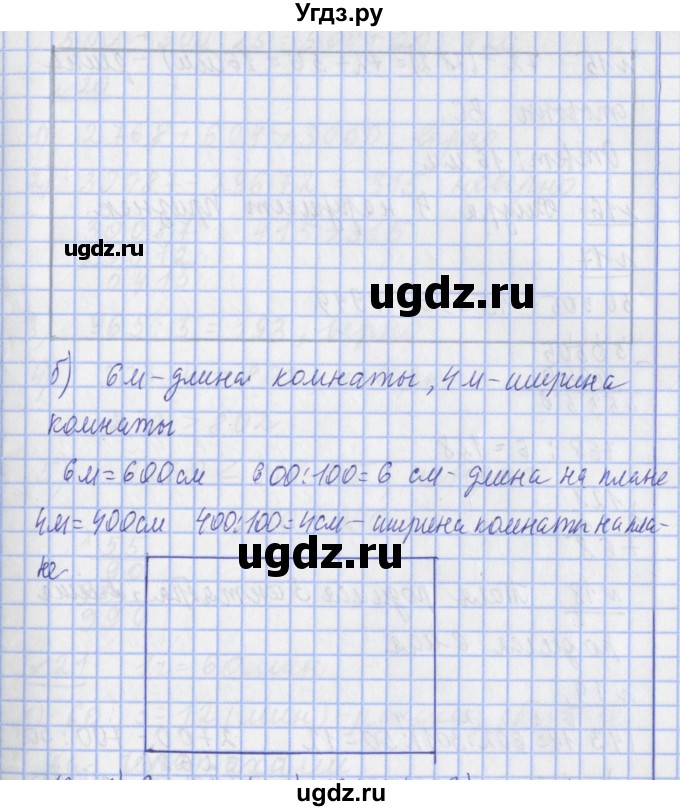 Угдз.ру
ugdz.ru
ugdz.ru
б) 6м-длина комнаты, 4м-ширина
комнаты
6м=600см 600:100=6 см-длина на плане
4м=400см 400:100=4см-ширина комнаты на пла-
не
ugdz.ru
ugdz.ru